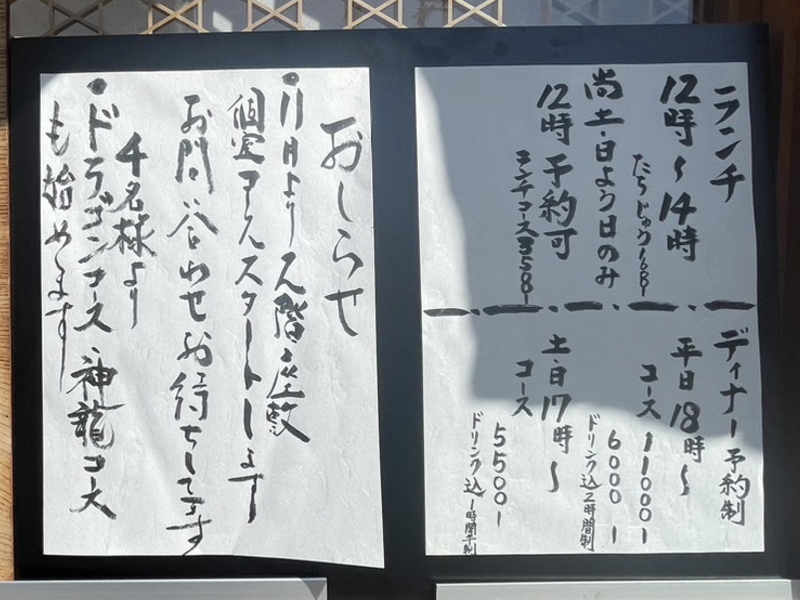 ランチ
12時〜14時
たらじゅう1688ー
尚土・日よう日のみ
12時予約可
ランチコース3858ー
ディナー予約制
平日18時〜
コース11000ー
6000ー
ドリンク込2時間制
土・日17時〜
コース
5500ー
ドリンク込
おしらせ
・11月より2階座敷
個室コーススタートします
お問い合わせお待ちしてます
・ドラゴンコース、神龍コース
4名様より
も始めます